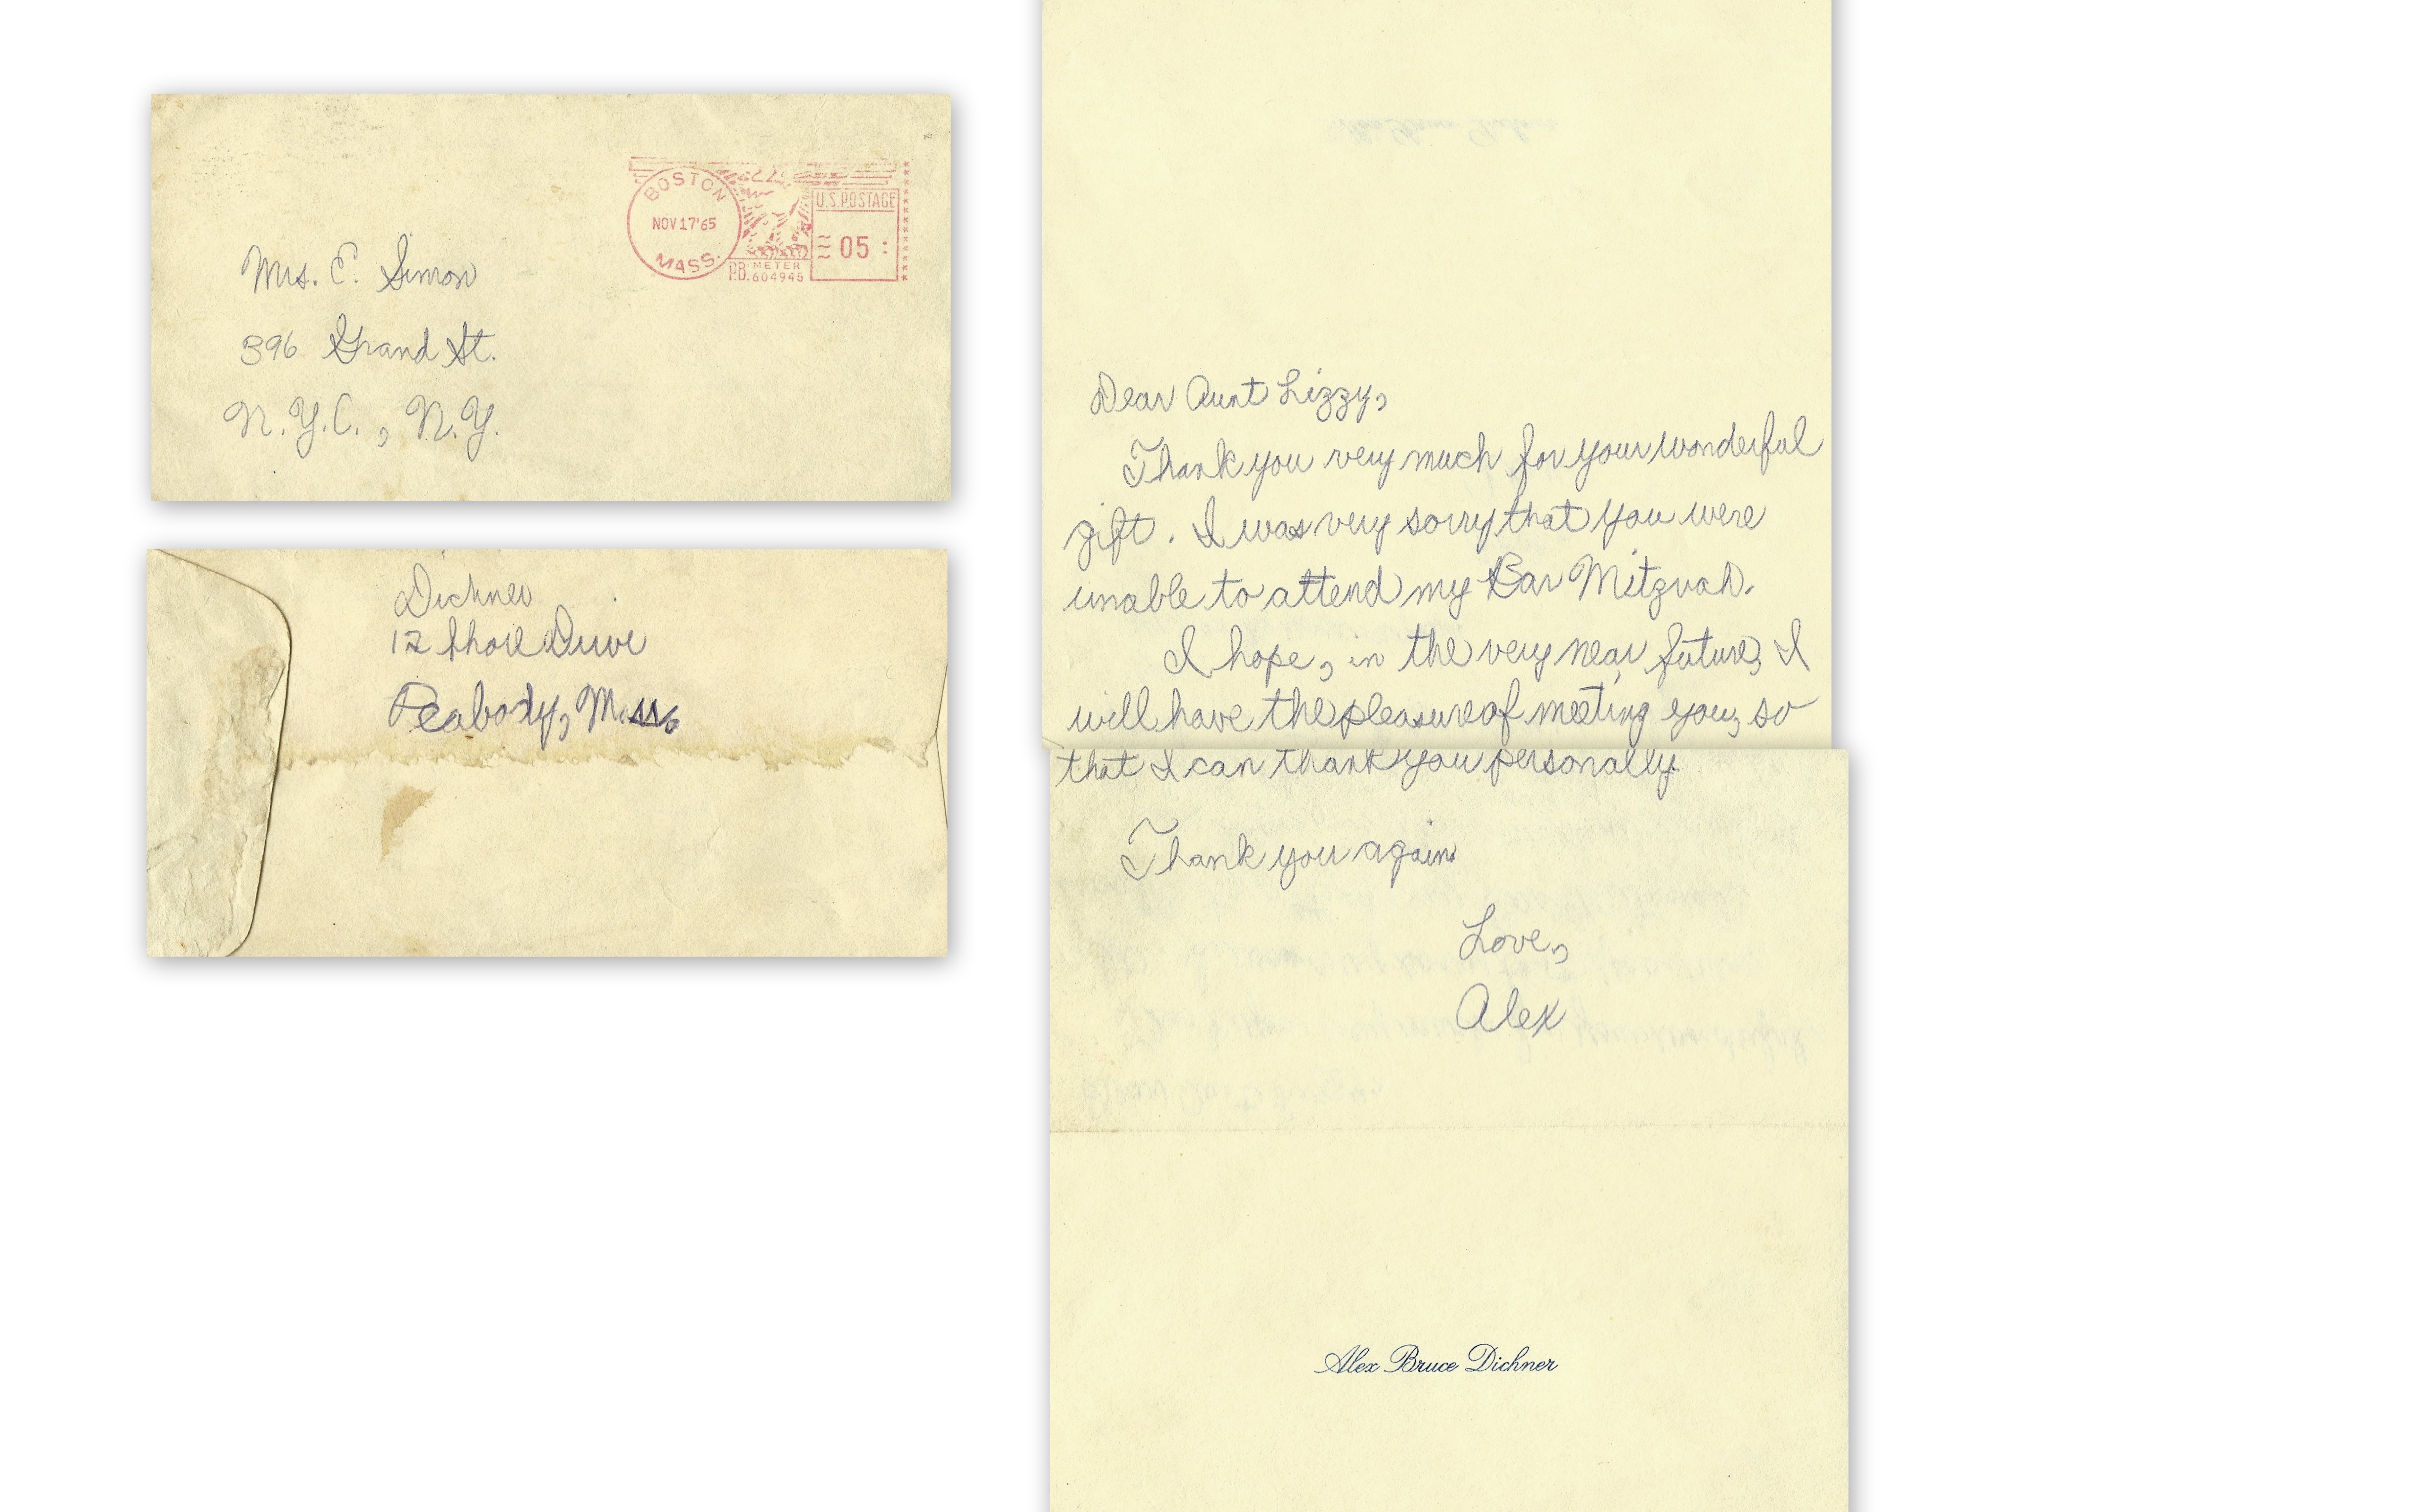 BOSTON
NOV 17 '65
MASS.
U.S. POSTAGE
05
P.B. METER
604945
Mrs. E. Simon
396 Grand St.
N.Y.C., N.Y.
Dichner
12 Shore Drive
Peabody, Mass
Dear Aunt Lizzy,
Thank you very much for your wonderful
gift. I was very sorry that you were
unable to attend my Bar Mitzvah.
I hope, in the very near future, I
will have the pleasure of meeting you, so
that I can thank you personally.
Thank you again
Love,
Alex
Alex Bruce Dichner